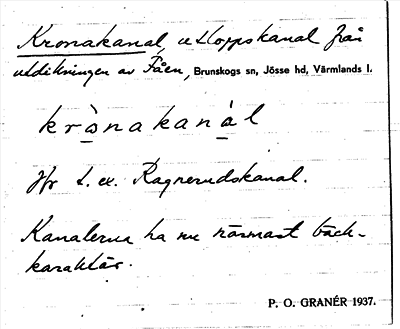 Kronakanal, utloppskanal från
utdikningen av Fåen, Brunskogs sn, Jösse hd, Värmlands l.
krò̱nakanà̱l
Jfr t. ex. Ragnerudskanal.
Kanalerna ha nu närmast bäck-
karaktär.
P. O. GRANÉR 1937.